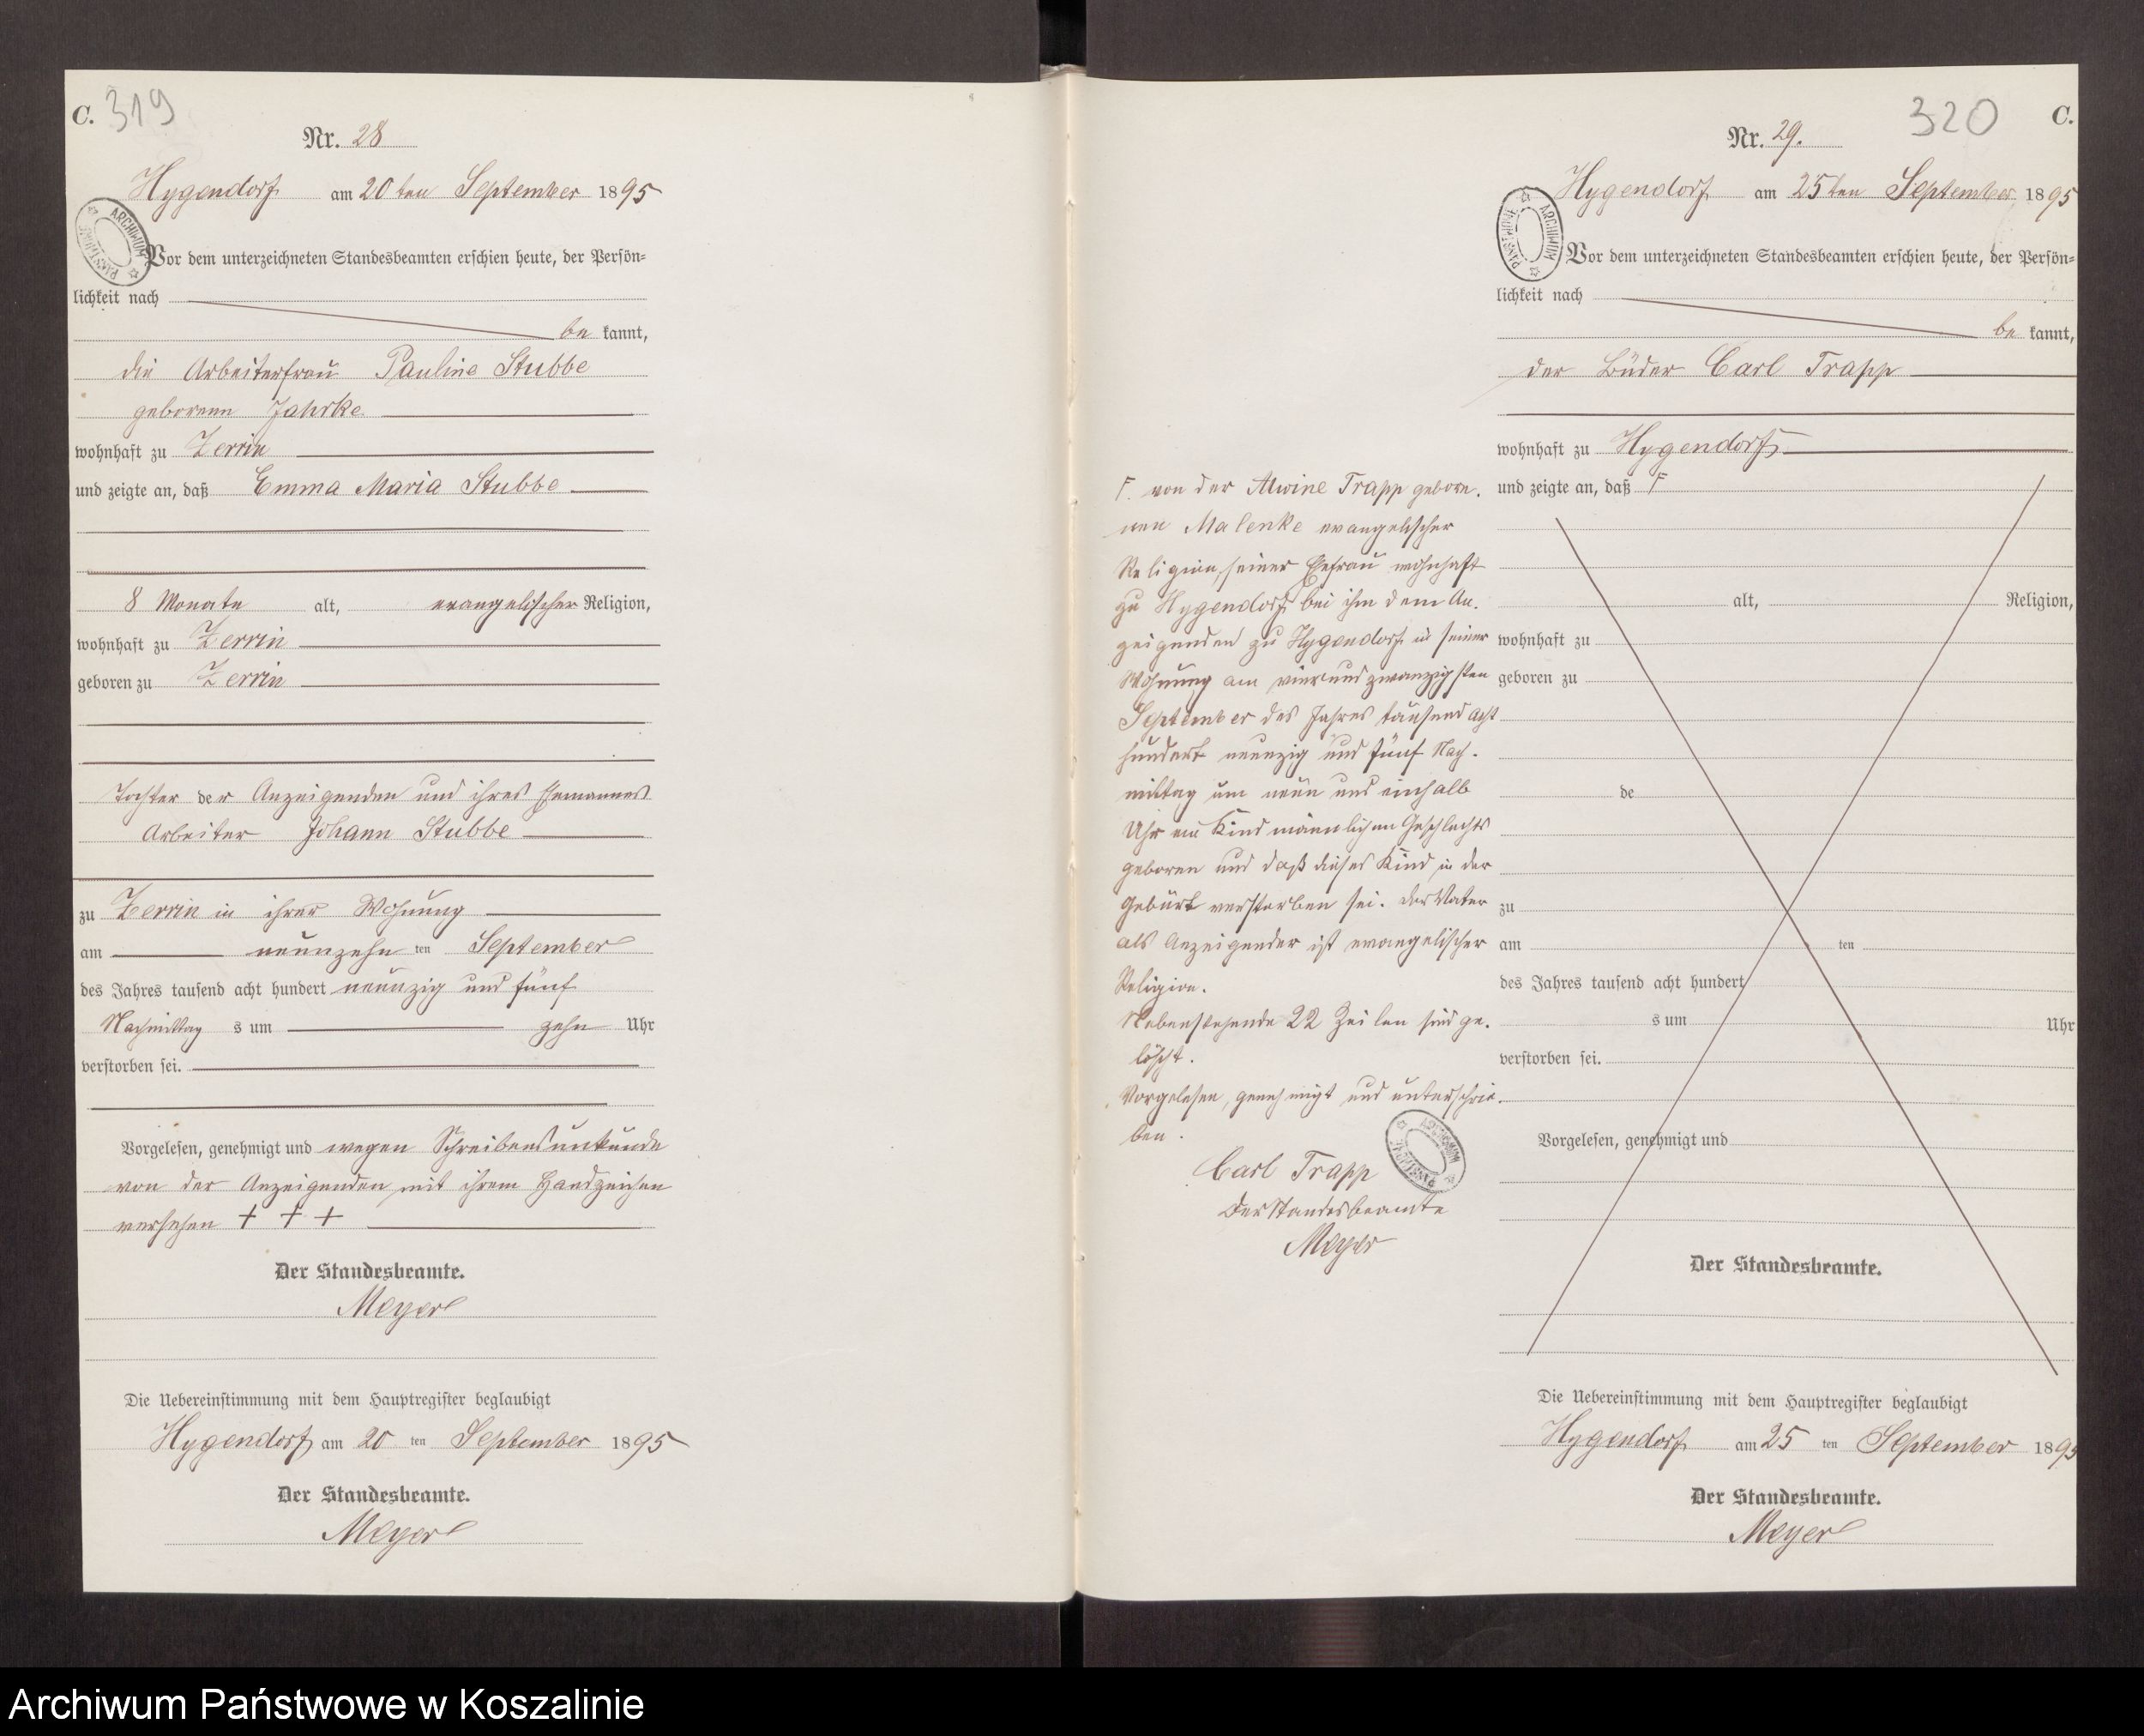 C. 319
Nr. 28
Hygendorf am 20ten September 1895
ARCHIWUM PAŃSTWOWE
Vor dem unterzeichneten Standesbeamten erschien heute, der Persön-
lichkeit nach
be kannt,
die Arbeiterfrau Pauline Stubbe
geborene Jahrke
wohnhaft zu Zerrin
und zeigte an, daß Emma Maria Stubbe
8 Monate alt, evangelischer Religion,
wohnhaft zu Zerrin
geboren zu Zerrin
Tochter der Anzeigenden und ihres Ehemannes
Arbeiter Johann Stubbe
zu Zerrin in ihrer Wohnung
am neunzehn ten September
des Jahres tausend acht hundert neunzig und fünf
Nachmittag s um zehn Uhr
verstorben sei.
Vorgelesen, genehmigt und wegen Schreibensunkunde
von der Anzeigenden mit ihrem Handzeichen
versehen + + +
Der Standesbeamte.
Meyer
Die Uebereinstimmung mit dem Hauptregister beglaubigt
Hygendorf am 20 ten September 1895
Der Standesbeamte.
Meyer
320 C.
Nr. 29.
Hygendorf am 25ten September 1895
ARCHIWUM PAŃSTWOWE
Vor dem unterzeichneten Standesbeamten erschien heute, der Persön-
lichkeit nach
be kannt,
der Büdner Carl Trapp
wohnhaft zu Hygendorf
und zeigte an, daß F
alt, Religion,
wohnhaft zu
geboren zu
de
zu
am ten
des Jahres tausend acht hundert
s um Uhr
verstorben sei.
Vorgelesen, genehmigt und
Der Standesbeamte.
Die Uebereinstimmung mit dem Hauptregister beglaubigt
Hygendorf am 25 ten September 1895
Der Standesbeamte.
Meyer
F. von der Alwine Trapp gebore-
nen Malenke evangelischer
Religion, seiner Ehefrau wohnhaft
zu Hygendorf bei ihm dem An-
zeigenden zu Hygendorf in seiner
Wohnung am vierundzwanzigsten
September des Jahres tausend acht
hundert neunzig und fünf Nach-
mittag um neun und einhalb
Uhr ein Kind männlichen Geschlechts
geboren und daß dieses Kind in der
Geburt verstorben sei. Der Vater
als Anzeigender ist evangelischer
Religion.
Nebenstehende 22 Zeilen sind ge-
löscht.
Vorgelesen, genehmigt und unterschrie-
ben.
Carl Trapp
ARCHIWUM PAŃSTWOWE
Der Standesbeamte
Meyer
Archiwum Państwowe w Koszalinie